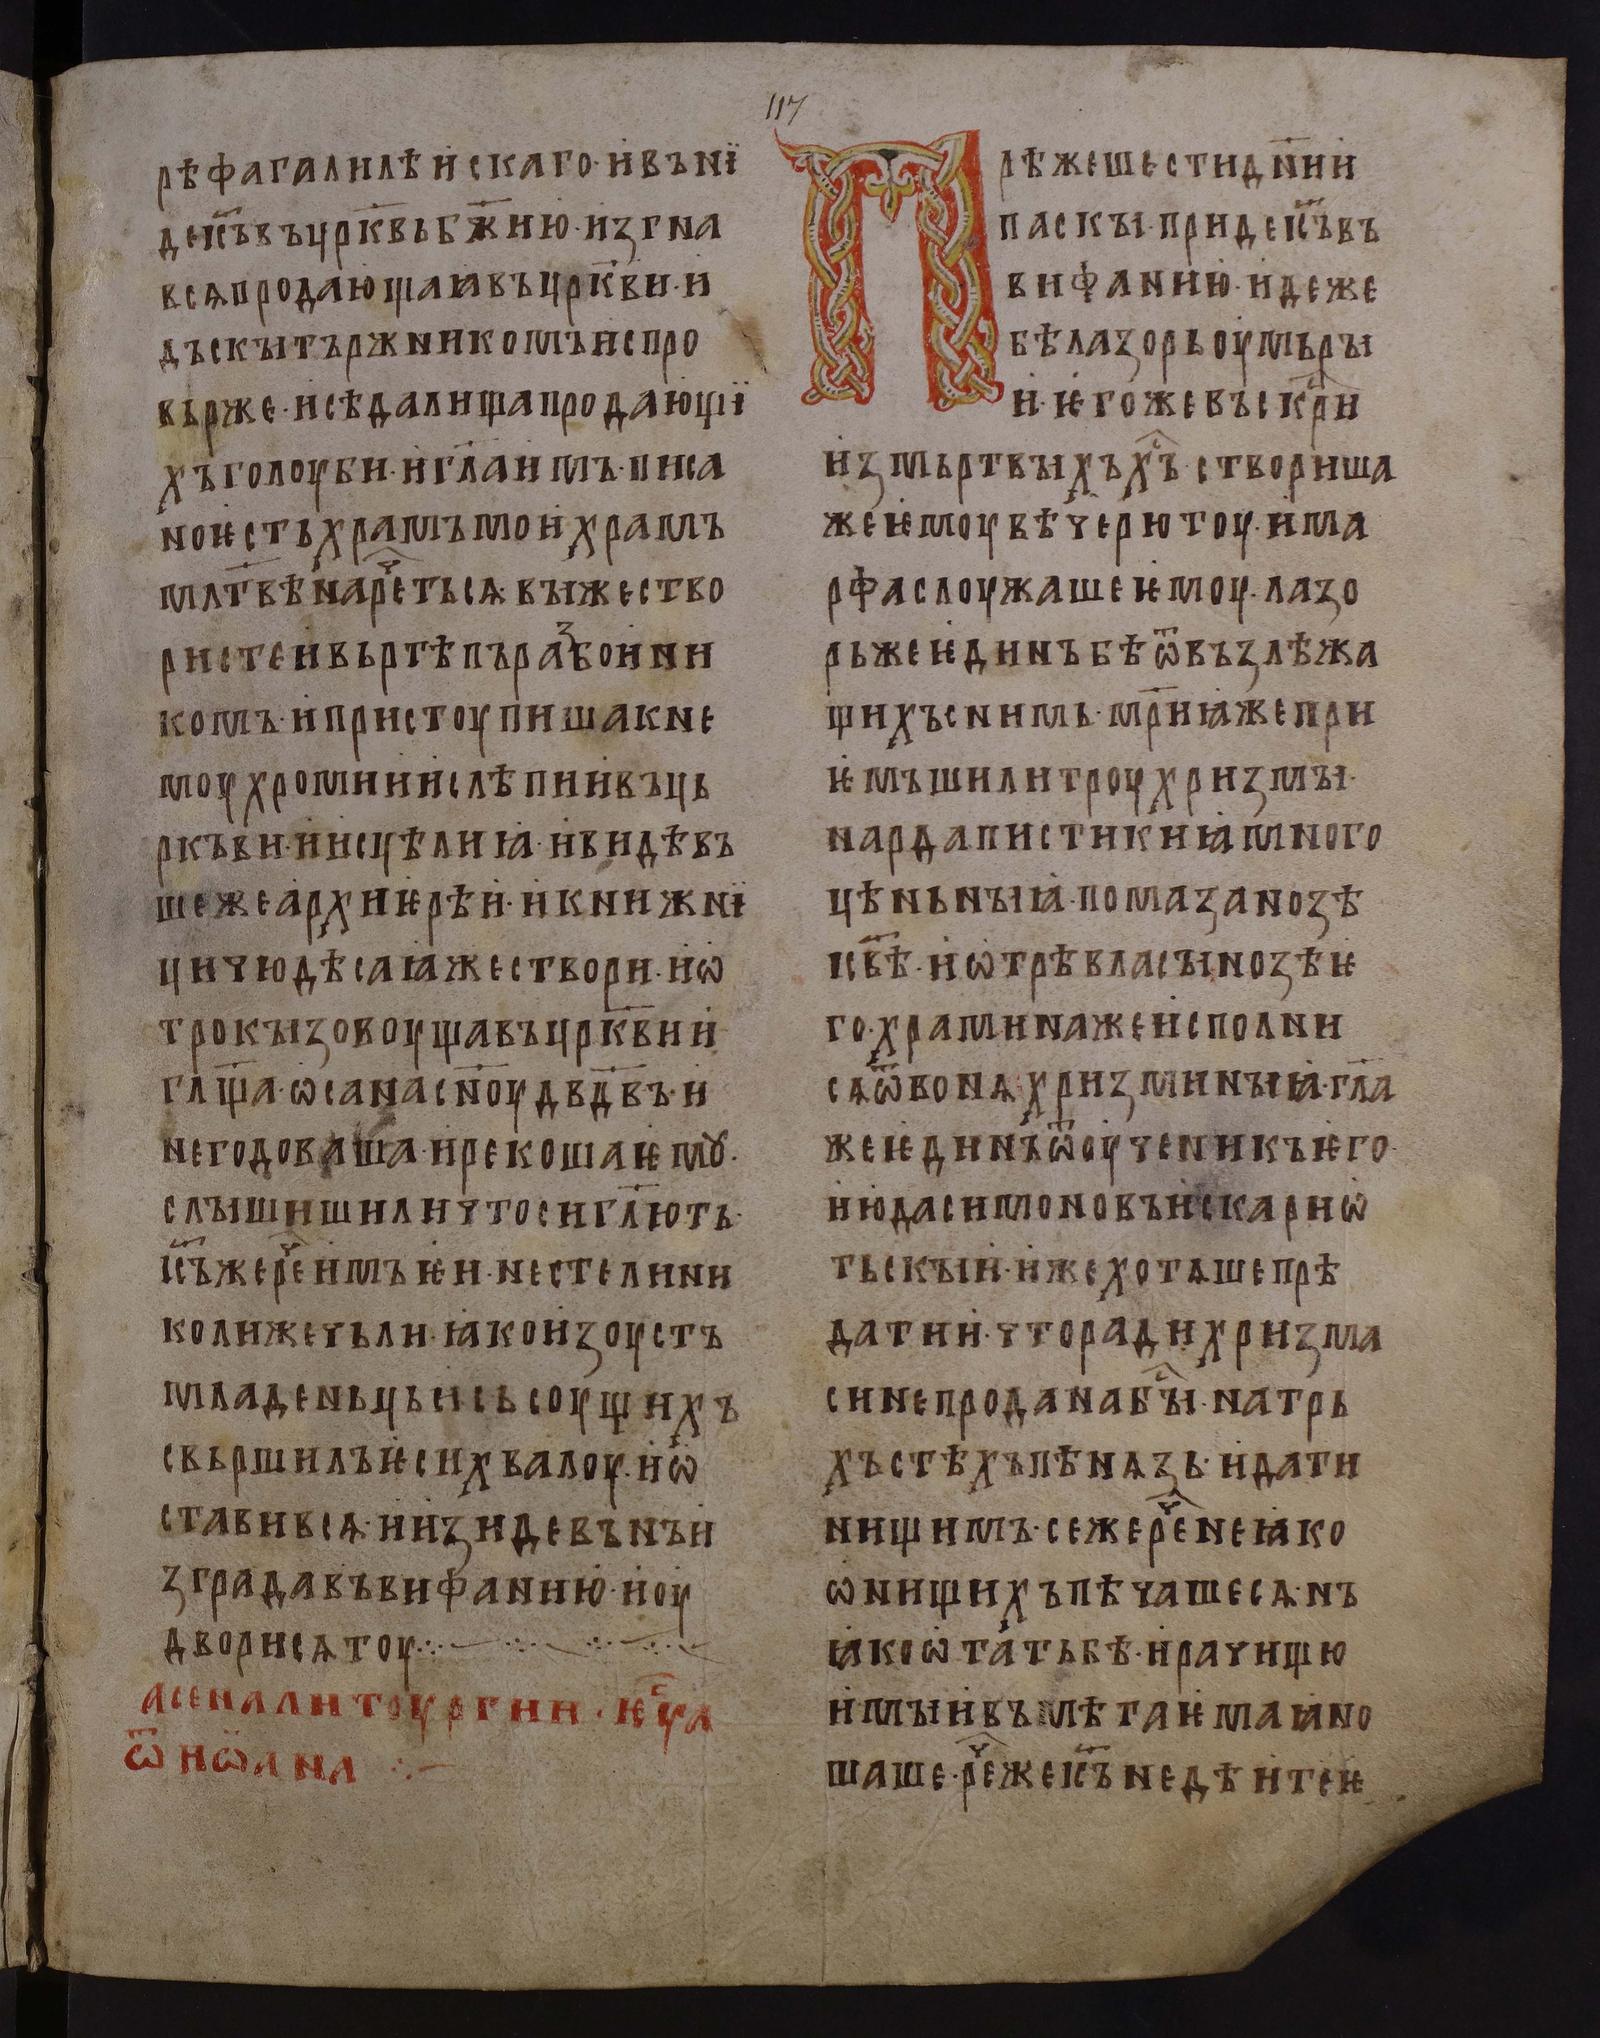 117
рѣфагалилѣискаго· ивънї
деі҃съвъцр҃квьбж҃ию· изгна
всѧпродающаꙗвъцр҃кви· и
дъскытържникомъиспро
вьрже· исѣдалищапродающї
хъголоуби· игл҃аимъ· писа
ноѥстьхрамъмоихрамъ
мл҃твѣнареⷱ҇тьсѧ· выжество
ристеивьртѣпъраⷥбоини
комъ· ипристоупишакне
моухромииислѣпиивъць
ркъви· иисцѣлиꙗ· ивидѣвъ
шежеархиѥрѣи· икнижнї
цичюдѣсаꙗжестворі· иѡ
трокызовоущавъцр҃квии
гл҃ща· ѡсанасн҃оудв҃двъ· и
негодоваша· ирекошаѥмꙋ·
слышишиличтосигл҃ють·
і҃съжереⷱ҇имъѥи· нестелини
колижечьли· ꙗкоизоустъ
младеньцьисьсоущихъ
свьршилъѥсихвалоу· иѿ
ставивсѧ· иизидевънъи
зградавъвифанию· иоу
дворисѧтоу
асеналитоургии· ѥуⷭ҇а
ѿиѡана
Прѣжешестидн҃ии
паскы· придеі҃съвъ
вифанию· идеже
бѣлазорьоумьры
и· ѥгожевъскрⷭ҇и
измьртвыхъхⷭ҇ъ· створиша
жеѥмоувѣчерютоу· има
рфаслоужашеѥмоу· лазо
рьжеѥдинъбѣѿвъзлѣжа
щихъснимь· мр҃иꙗжепри
ѥмъшилитроухризмы·
нардапистикиꙗмного
цѣньныꙗ· помазанозѣ
і҃свѣ· иѡтрѣвласынозѣѥ
го· храминажеисполни
сѧѿвонѧхризминыꙗ· гл҃а
жеѥдинъѿоученикъѥго·
июдасимоновъискариѡ
тьскыи· ижехотѧшепрѣ
датии· чторадихризма
синепроданабыⷭ҇· натрь
хъстѣхъпѣнѧзь· идати
нищимъ· сежереⷱ҇неꙗко
ѡнищихъпѣчашесѧ· нъ
ꙗкоѡтатьбѣ· ирачицю
имыивъмѣтаѥмаꙗно
шаше· реⷱ҇жеі҃съ недѣитеѥ